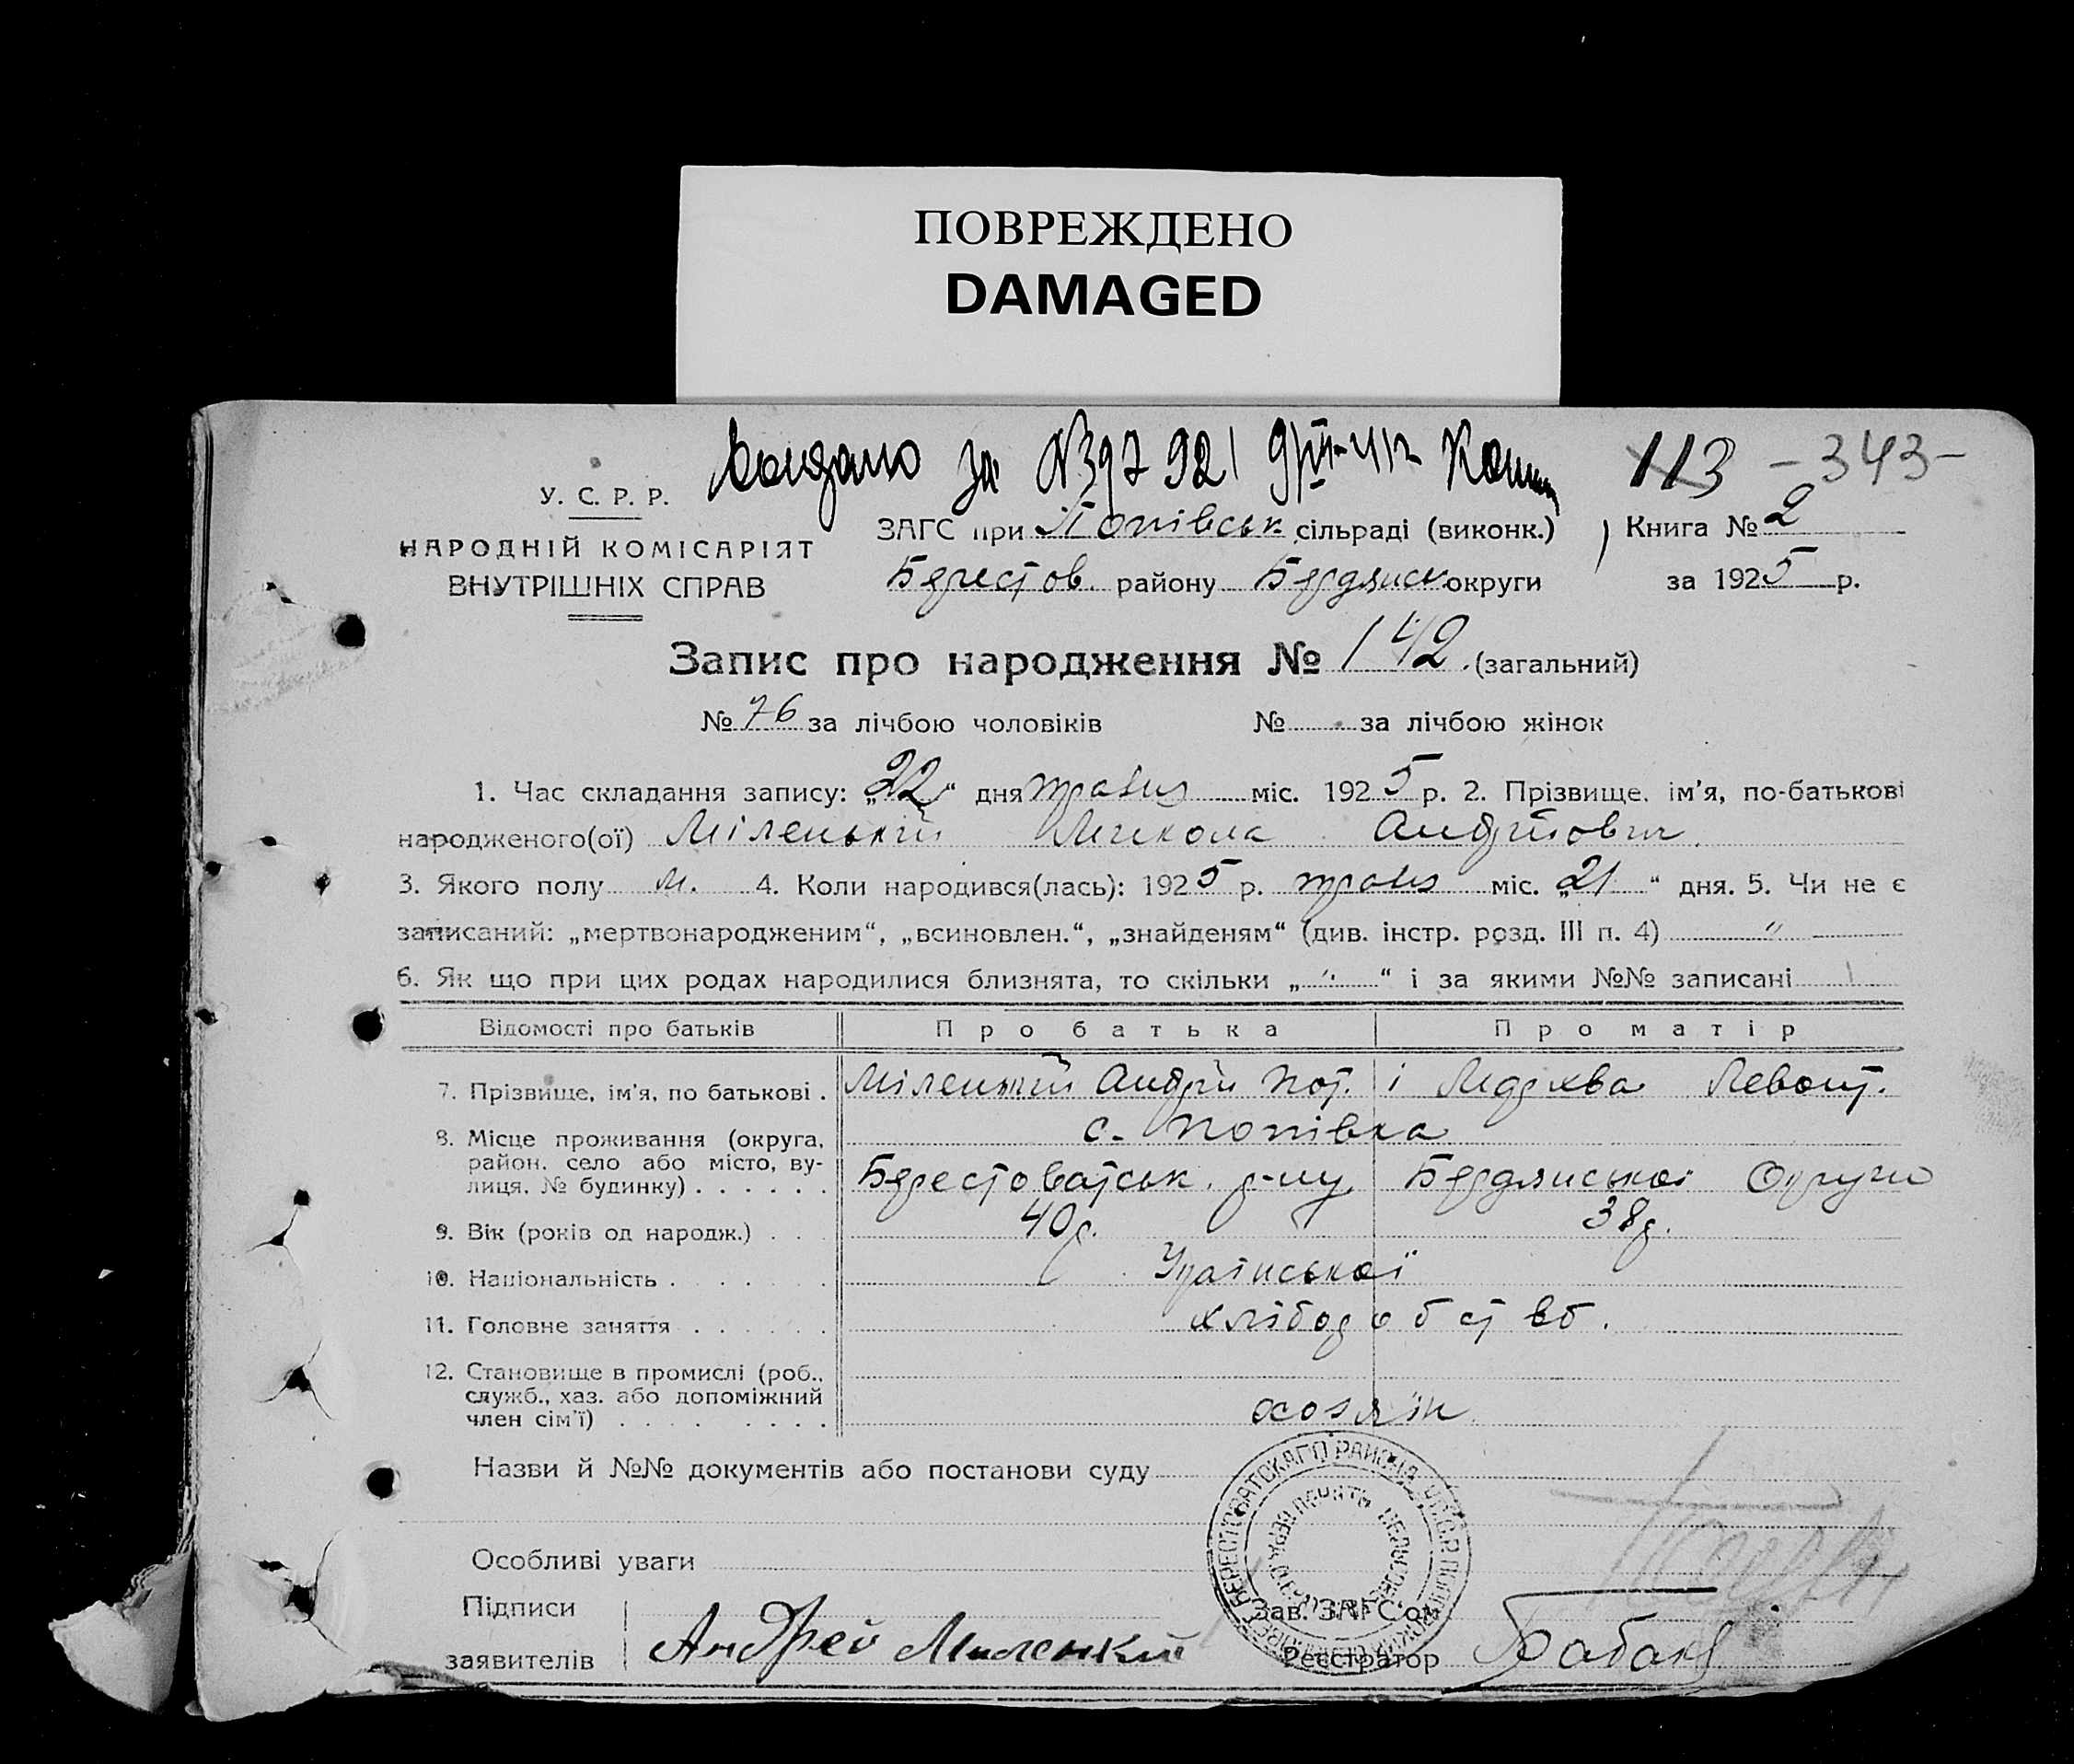 ПОВРЕЖДЕНО
DAMAGED
за №397 921 113 -343-
У. С. Р. Р.
НАРОДНІЙ КОМІСАРІЯТ
ВНУТРІШНІХ СПРАВ
ЗАГС при Попівськ сільраді (виконк.) Книга № 2
Берестов. району Бердянськ округи за 1925 р.
Запис про народження № 142. (загальний)
№ 76 за лічбою чоловіків № за лічбою жінок
1. Час складання запису: „22“ дня травня міс. 1925 р. 2. Прізвище, ім'я, по-батькові
народженого(ої) Міленький Микола Андрійович.
3. Якого полу м. 4. Коли народився(лась): 1925 р. травня міс. „21“ дня. 5. Чи не є
записаний: „мертвонародженим“, „всиновлен.“, „знайденям“ (див. інстр. розд. III п. 4) "
6. Як що при цих родах народилися близнята, то скільки „ " “ і за якими №№ записані
Відомості про батьків Про батька Про матір
7. Прізвище, ім'я, по батькові . Міленький Андрій Пот. і Левонт.
8. Місце проживання (округа, с. Попівка
район, село або місто, ву-
лиця, № будинку) . . . . . . Берестоватськ. р-ну Бердянської Округи
9. Вік (років од народж.) . . . 40р. 38р.
10. Національність . . . . . . Української
11. Головне заняття . . . . . . хліборобств.
12. Становище в промислі (роб.,
служб., хаз. або допоміжний
член сім'ї) . . . . . . . . . хозяїн.
Назви й №№ документів або постанови суду
Особливі уваги
Підписи
Зав. ЗАГС'ом
заявителів Андрей Миленкий Реєстратор